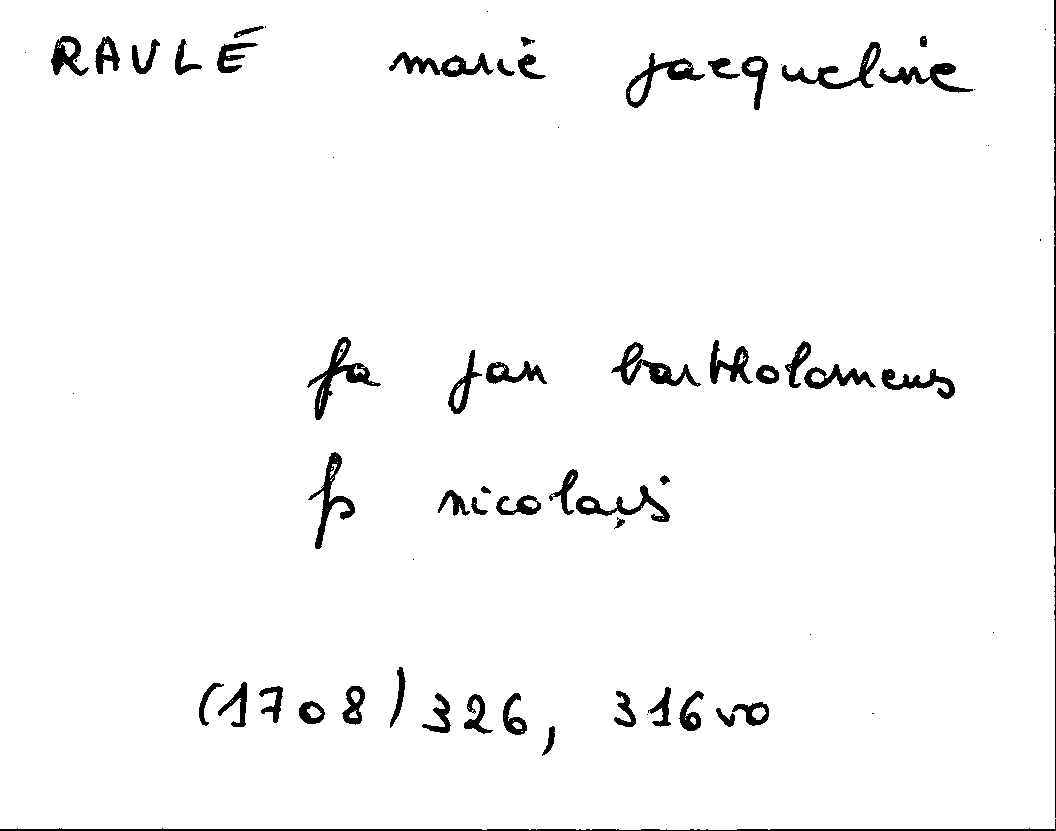 RAULÉ marie jacqueline
fa jan bartholomeus
fs nicolays
(1708) 326, 316vo